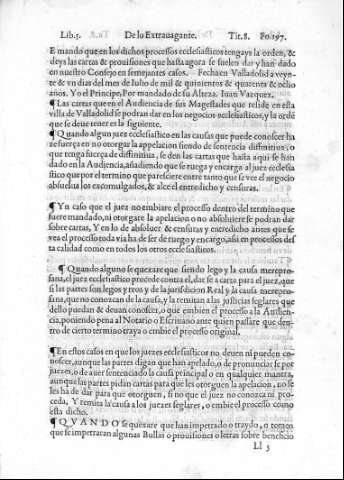 Lib.5. De lo Extrauagante. Tit.8. Fo.197.
E mando que en los dichos processos ecclesiasticos tengays la orden, &
deys las cartas & prouisiones que hasta agora se suelen dar y han dado
en nuestro Consejo en semejantes casos. Fecha en Valladolid a veyn-
te & vn dias del mes de Iulio de mil & quinientos & quarenta & ocho
años. Yo el Principe, Por mandado de su Alteza. Iuan Vazquez.
¶ Las cartas que en el Audiencia de sus Magestades que reside en esta
villa de Valladolid se podran dar en los negocios ecclesiasticos, y la ordē
que se deue tener es la siguiente.
¶ Quando algun juez ecclesiastico en las causas que puede conoscer ha
ze fuerça en no otorgar la apelacion siendo de sentencia diffinitiua, o
que tenga fuerça de diffinitiua, se den las cartas que hasta aqui se han
dado en la Audiencia, añadiendo que se ruega y encarga al juez ecclesia
stico que por el termino que paresciere entre tanto que se vee el negocio
absuelua los excomulgados, & alce el entredicho y censuras.
¶ Yn caso que el juez no embiare el processo dentro del termino que
fuere mandado, ni otorgare la apelacion o no absoluiere se podran dar
sobre cartas, Y en lo de absoluer & censuras y entredicho antes que se
vea el processo toda via ha de ser de ruego y encargo, assi en processos des
ta calidad como en todos los otros ecclesiasticos.
¶ Quando alguno se quexare que siendo lego y la causa merepro-
fana, el juez ecclesiastico procede contra el, dar se a carta para el juez, que
si las partes son legos y reos y de la jurisdicion Real y la causa merepro-
fana, que no conozcan de la causa, y la remitan a las justicias seglares que
dello puedan & deuan conoscer, o que embien el processo a la Audien-
cia, poniendo pena al Notario o Escriuano ante quien passare que den-
tro de cierto termino traya o embie el processo original.
¶ En estos casos en que los juezes ecclesiasticos no deuen ni pueden co-
noscer, aunque las partes digan que han apelado, o de pronunciar se por
juezes, o de auer sentenciado la causa principal o en qualquier manera,
aunque las partes pidan cartas para que les otorguen la apelacion, no se
les ha de dar para que otorguen, si no que el juez no conozca ni pro-
ceda, Y remita la causa a los juezes seglares, o embie el processo como
esta dicho.
¶ QVANDO se quexare que han impetrado o traydo, o temen
que se impetraran algunas Bullas o prouisiones o letras sobre beneficio
Ll 5